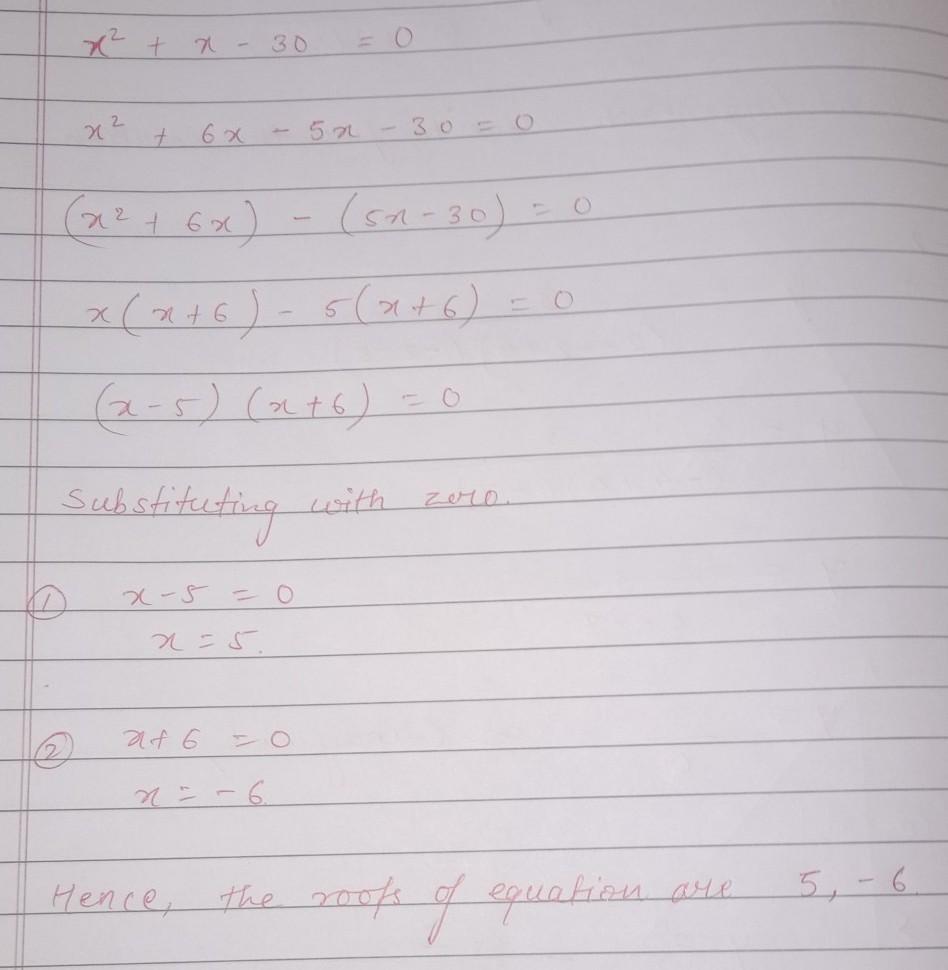 x² + x - 30 = 0
x² + 6x - 5x - 30 = 0
(x² + 6x) - (5x - 30) = 0
x(x+6) - 5(x+6) = 0
(x-5) (x+6) = 0
Substituting with zero.
① x-5 = 0
x = 5.
② x+6 = 0
x = -6.
Hence, the roots of equation are 5, -6.